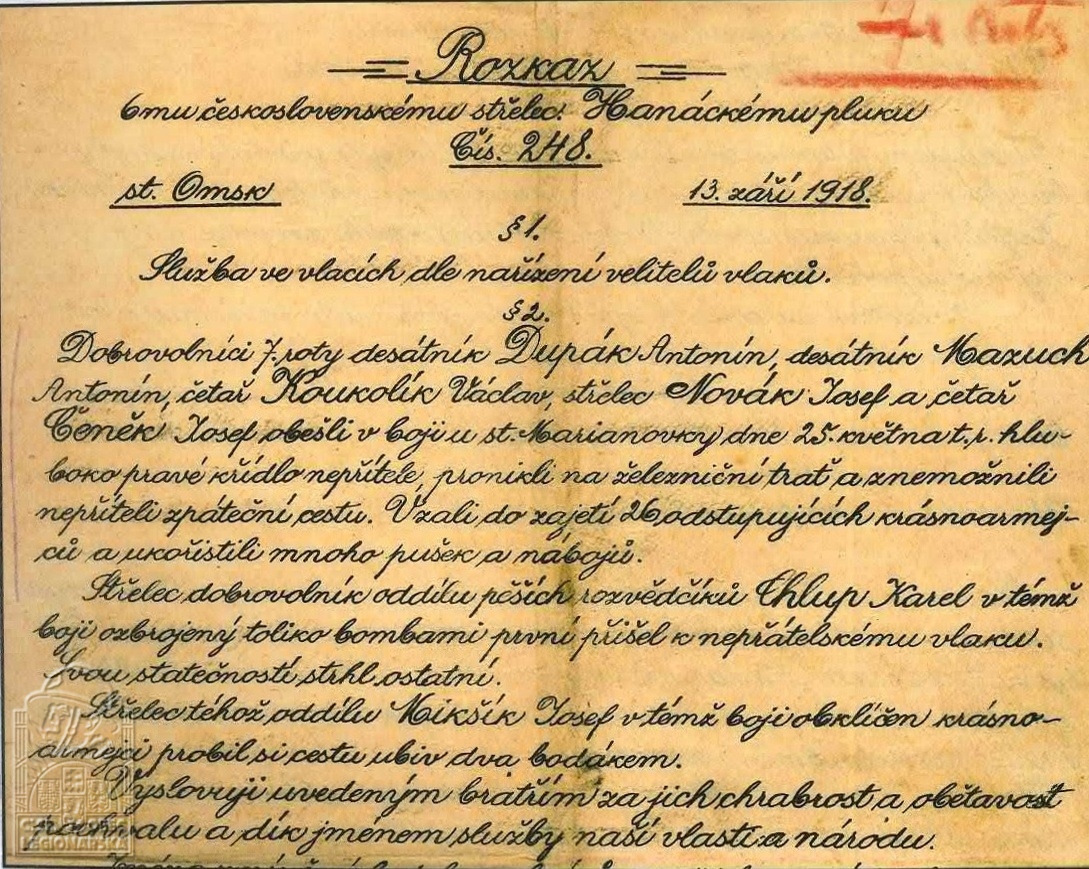 Rozkaz
6mu československému střelec. Hanáckému pluku
Čís. 248.
st. Omsk 13. září 1918.
§ 1.
Služba ve vlacích dle nařízení velitelů vlaků.
§ 2.
Dobrovolníci 7. roty desátník Dupák Antonín, desátník Mazuch
Antonín, četař Koukolík Václav, střelec Novák Josef a četař
Čeněk Josef obešli v boji u st. Marianovky dne 25. května t. r. hlu-
boko pravé křídlo nepřítele, pronikli na železniční trať a znemožnili
nepříteli zpáteční cestu. Vzali do zajetí 26 odstupujících krásnoarmej-
ců a ukořistili mnoho pušek a nábojů.
Střelec dobrovolník oddílu pěších rozvědčíků Chlup Karel v témž
boji ozbrojený toliko bombami první přišel k nepřátelskému vlaku.
Svou statečností strhl ostatní.
Střelec téhož oddílu Mikšík Josef v témž boji obklíčen krásno-
armejci probil si cestu ubiv dva bodákem.
Vyslovuji uvedeným bratřím za jich chrabrost a obětavost
pochvalu a dík jménem služby naší vlasti a národu.
LEGIONÁŘSKÁ